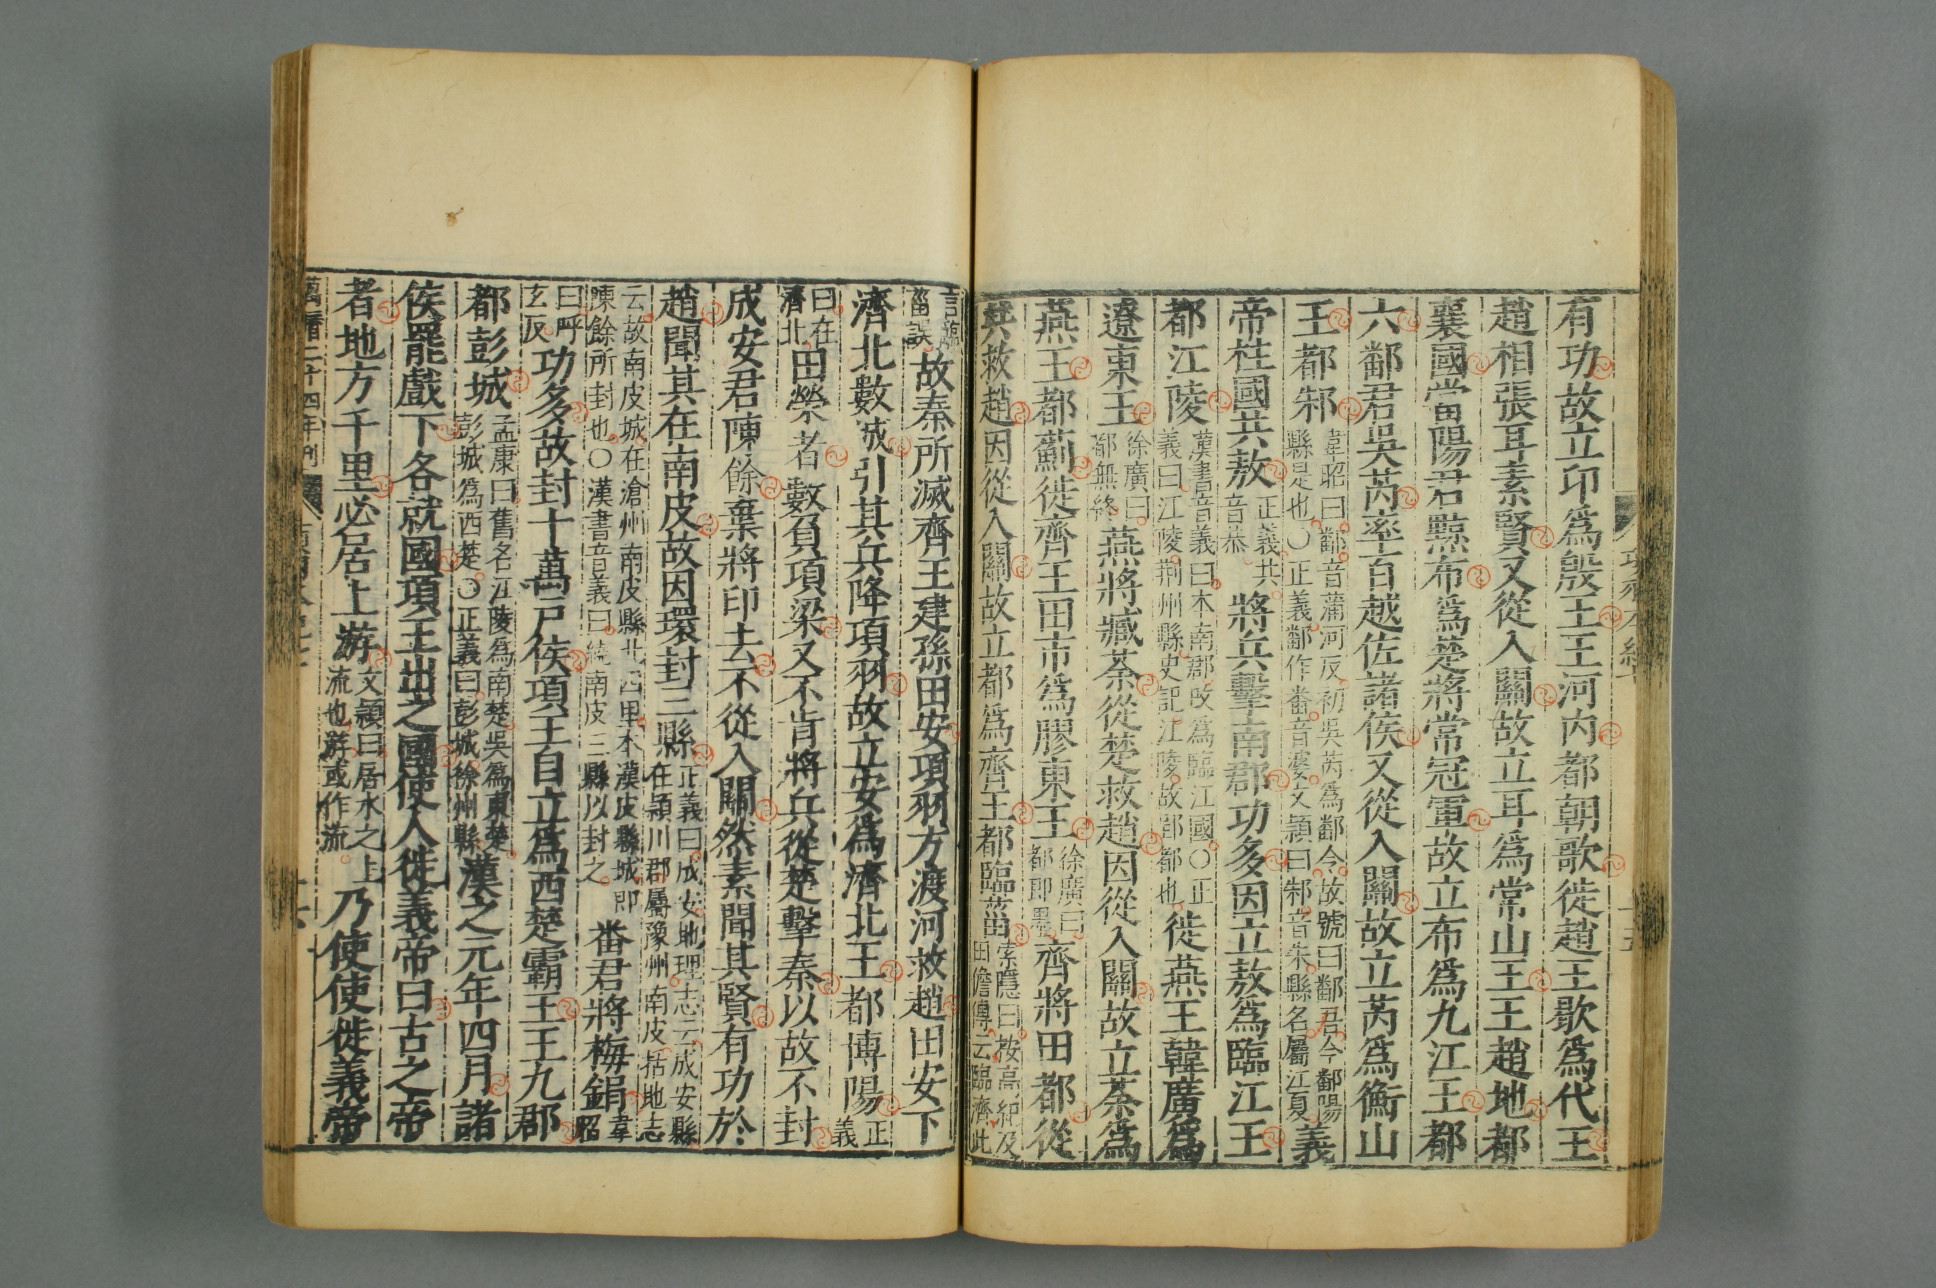 有功故立卬爲殷王王河内都朝歌徙趙王歇爲代王
趙相張耳素賢又從入關故立耳爲常山王王趙地都
襄國當陽君黥布爲楚將常冠軍故立布爲九江王都
六鄱君吳芮率百越佐諸侯又從入關故立芮爲衡山
王都邾韋昭曰鄱音蒲河反初吳芮爲鄱令故號曰鄱君今鄱陽縣是也○正義鄱作番音婆文穎曰邾音朱縣名屬江夏義
帝柱國共敖正義共音恭將兵擊南郡功多因立敖爲臨江王
都江陵漢書音義曰本南郡改爲臨江國○正義曰江陵荆州縣史記江陵故郢都也徙燕王韓廣爲
遼東王徐廣曰都無終燕將臧荼從楚救趙因從入關故立荼爲
燕王都薊徙齊王田市爲膠東王徐廣曰都即墨齊將田都從
共救趙因從入關故立都爲齊王都臨菑索隱曰按高紀及田儋傳云臨濟此
言臨菑誤故秦所滅齊王建孫田安項羽方渡河救趙田安下
濟北數城引其兵降項羽故立安爲濟北王都博陽正義
曰在濟北田榮者數負項梁又不肯將兵從楚擊秦以故不封
成安君陳餘棄將印去不從入關然素聞其賢有功於
趙聞其在南皮故因環封三縣正義曰成安地理志云成安縣在潁川郡屬豫州南皮括地志
云故南皮城在滄州南皮縣北四里本漢皮縣城即陳餘所封也○漢書音義曰繞南皮三縣以封之番君將梅鋗韋昭
曰呼玄反功多故封十萬戶侯項王自立爲西楚霸王王九郡
都彭城孟康曰舊名江陵爲南楚吳爲東楚彭城爲西楚○正義曰彭城徐州縣漢之元年四月諸
侯罷戲下各就國項王出之國使人徙義帝曰古之帝
者地方千里必居上游文穎曰居水之上流也游或作流乃使使徙義帝
萬曆二十四年刊